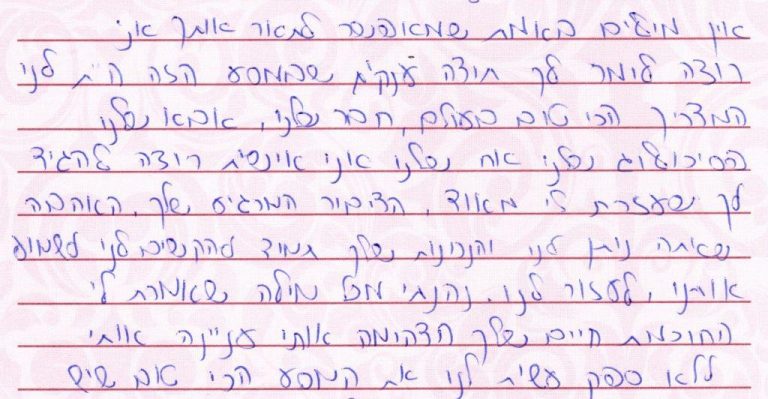 אין מילים באמת שמאפשר לתאר אותך אני
רוצה לומר לך תודה ענקית שבמסע הזה היית לנו
המדריך הכי טוב בעולם, חבר שלנו, אבא שלנו
הפסיכולוג שלנו אח שלנו אני אישית רוצה להגיד
לך שעזרת לי מאוד, הדיבור המרגיע שלך, האהבה
שאיתה ניתן לנו והנכונות שלך תמיד להקשיב לנו לשמוע
אותנו, לעזור לנו. נהנתי מכל מילה שאמרת לי
החוכמת חיים שלך הדהימה אותי עניינה אותי
ללא ספק עשית לנו את המסע הכי טוב שיש